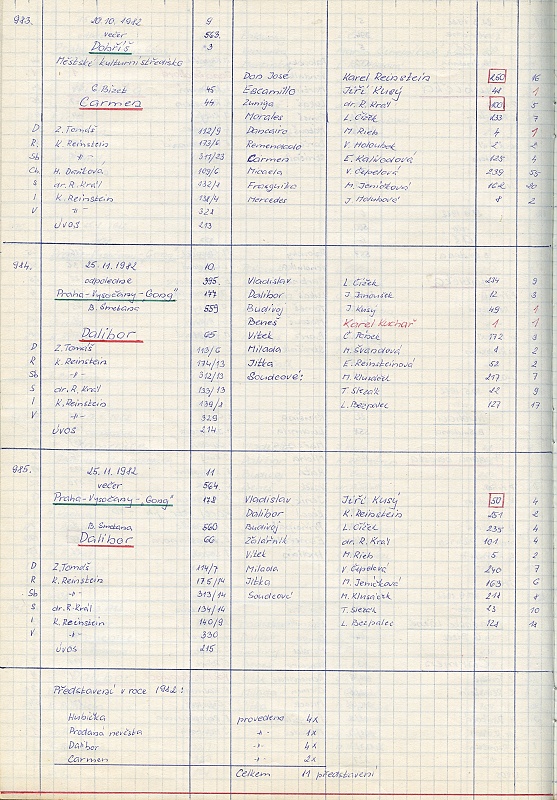 983. 20.10.1982 9
večer 563.
Dobříš 3
Městské kulturní středisko
Don José Karel Reinstein 250 16
G. Bizet 45 Escamillo Jiří Kusý 48 1
Carmen 44 Zuniga dr. R. Král 100 5
Morales L. Čížek 233 7
D Z. Tomáš 112/9 Dancairo M. Rieb 4 1
R. K. Reinstein 173/6 Remendado V. Holoubek 2 2
Sb -"- 311/23 Carmen E. Kalivodová 125 4
Ch. H. Daňková 109/6 Micaela V. Čepelová 239 55
S dr. R. Král 132/1 Frasquita M. Jeníčková 162 20
I K. Reinstein 138/4 Mercedes J. Holubová 8 2
V -"- 328
ÚVOS 213
984. 25.11.1982 10.
odpoledne 395. Vladislav L. Čížek 234 9
Praha-Vysočany-"Gong" 177 Dalibor J. Janoušek 12 3
B. Smetana 559 Budivoj J. Kusý 49 1
Beneš Karel Kuchař 1 1
Dalibor 65 Vítek Č. Pönek 172 3
D Z. Tomáš 113/6 Milada M. Švandová 1 2
R K. Reinstein 174/13 Jitka E. Reinsteinová 52 2
Sb -"- 312/13 Soudcové: M. Klusáček 217 7
S dr. R. Král 133/13 T. Slezák 22 9
I K. Reinstein 139/8 L. Bezpalec 127 17
V -"- 329
ÚVOS 214
985. 25.11.1982 11
večer 564
Praha-Vysočany-"Gong" 178 Vladislav Jiří Kusý 50 4
Dalibor K. Reinstein 251 2
B. Smetana 560 Budivoj L. Čížek 235 4
Dalibor 66 Žalářník dr. R. Král 101 4
Vítek M. Rieb 5 2
D Z. Tomáš 114/7 Milada V. Čepelová 240 7
R K. Reinstein 175/14 Jitka M. Jeníčková 163 6
Sb -"- 313/14 Soudcové M. Klusáček 218 8
S dr. R. Král 134/14 T. Slezák 23 10
I K. Reinstein 140/9 L. Bezpalec 128 18
V -"- 330
ÚVOS 215
Představení v roce 1982:
Hubička provedena 4x
Prodaná nevěsta -"- 1x
Dalibor -"- 4x
Carmen -"- 2x
Celkem 11 představení